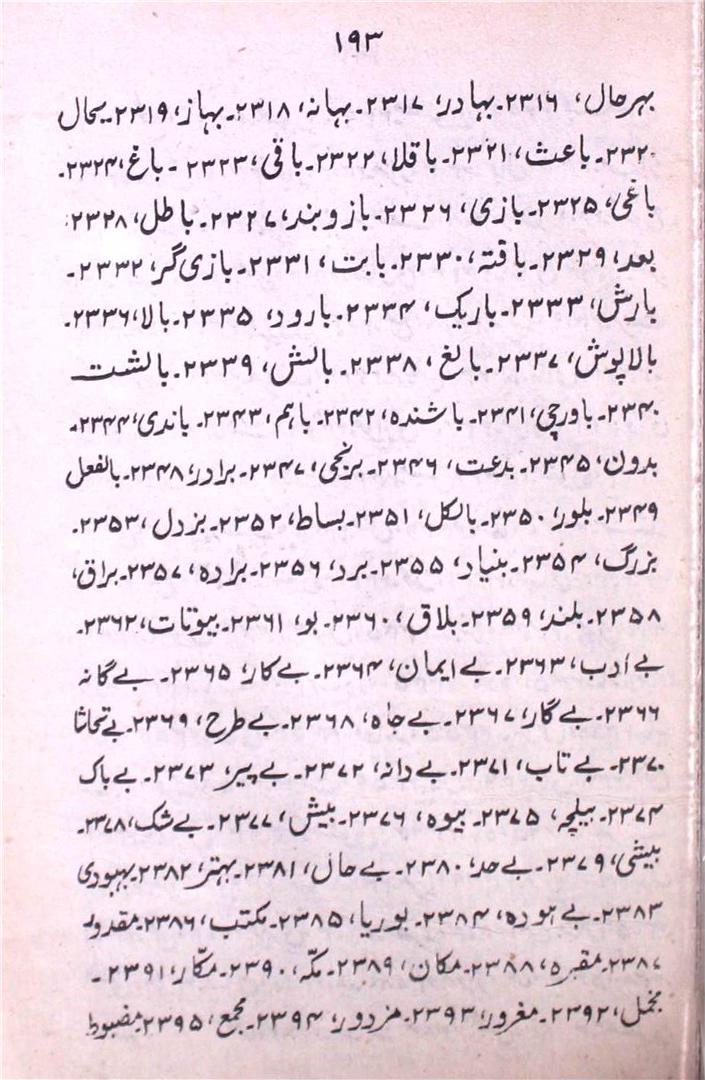 ۱۹۳
بہرحال، ۲۳۱۶۔بہادر، ۲۳۱۷۔بہانہ، ۲۳۱۸۔بہاز، ۲۳۱۹۔بحال
۲۳۲۰۔باعث، ۲۳۲۱۔باقلا، ۲۳۲۲۔باقی، ۲۳۲۳ ۔باغ، ۲۳۲۴۔
باغی، ۲۳۲۵۔بازی، ۲۳۲۶۔بازوبند، ۲۳۲۷۔باطل، ۲۳۲۸،
بعد، ۲۳۲۹۔باقتہ، ۲۳۳۰۔بابت، ۲۳۳۱۔بازی گر، ۲۳۳۲۔
بارش، ۲۳۳۳۔باریک، ۲۳۳۴۔بارود، ۲۳۳۵۔بالا، ۲۳۳۶۔
بالاپوش، ۲۳۳۷۔بالغ، ۲۳۳۸۔بالش، ۲۳۳۹۔بالشت
۲۳۴۰۔باورچی، ۲۳۴۱۔باشندہ، ۲۳۴۲۔باہم، ۲۳۴۳۔باندی، ۲۳۴۴۔
بدون، ۲۳۴۵۔بدعت، ۲۳۴۶۔برنجی، ۲۳۴۷۔برادر، ۲۳۴۸۔بالفعل
۲۳۴۹۔بلور، ۲۳۵۰۔بالکل، ۲۳۵۱۔بساط، ۲۳۵۲۔بزدل، ۲۳۵۳۔
بزرگ، ۲۳۵۴۔بنیاد، ۲۳۵۵۔برد، ۲۳۵۶۔برادہ، ۲۳۵۷۔براق،
۲۳۵۸۔بلند، ۲۳۵۹۔بلاق، ۲۳۶۰۔بو، ۲۳۶۱۔بیوتات، ۲۳۶۲۔
بے ادب، ۲۳۶۳۔بے ایمان، ۲۳۶۴۔بے کار، ۲۳۶۵۔بے گانہ
۲۳۶۶۔بے گار، ۲۳۶۷۔بے جاہ، ۲۳۶۸۔بے طرح، ۲۳۶۹۔بے تحاشا
۲۳۷۰۔بے تاب، ۲۳۷۱۔بے دانہ، ۲۳۷۲۔بے پیر، ۲۳۷۳۔بے باک
۲۳۷۴۔بیلچہ، ۲۳۷۵۔بیوہ، ۲۳۷۶۔بیش، ۲۳۷۷۔بے شک، ۲۳۷۸۔
بیشی، ۲۳۷۹۔بے حد، ۲۳۸۰۔بے حال، ۲۳۸۱۔بہتر، ۲۳۸۲۔بہبودی
۲۳۸۳۔بے ہودہ، ۲۳۸۴۔بوریا، ۲۳۸۵۔مکتب، ۲۳۸۶۔مقدور
۲۳۸۷۔مقبرہ، ۲۳۸۸۔مکان، ۲۳۸۹۔مکّہ، ۲۳۹۰۔مکّار، ۲۳۹۱۔
مخمل، ۲۳۹۲۔مغرور، ۲۳۹۳۔مزدور، ۲۳۹۴۔مجمع، ۲۳۹۵۔مضبوط